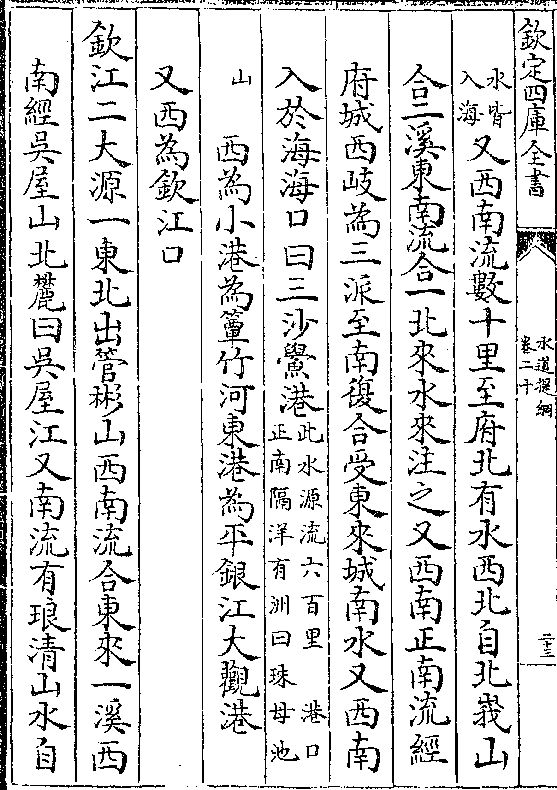 欽定四庫全書
水道提綱
卷二十
二十三
水皆入海又西南流數十里至府北有水西北自北峩山
合二溪東南流合一北來水來注之又西南正南流經
府城西岐為三派至南復合受東來城南水又西南
入於海海口曰三沙鱟港此水源流六百里 港口正南隔洋有洲曰珠母池
山 西為小港為簞竹河東港為平銀江大觀港
又西為欽江口
欽江二大源一東北出管彬山西南流合東來一溪西
南經吳屋山北麓曰吳屋江又南流有琅清山水自